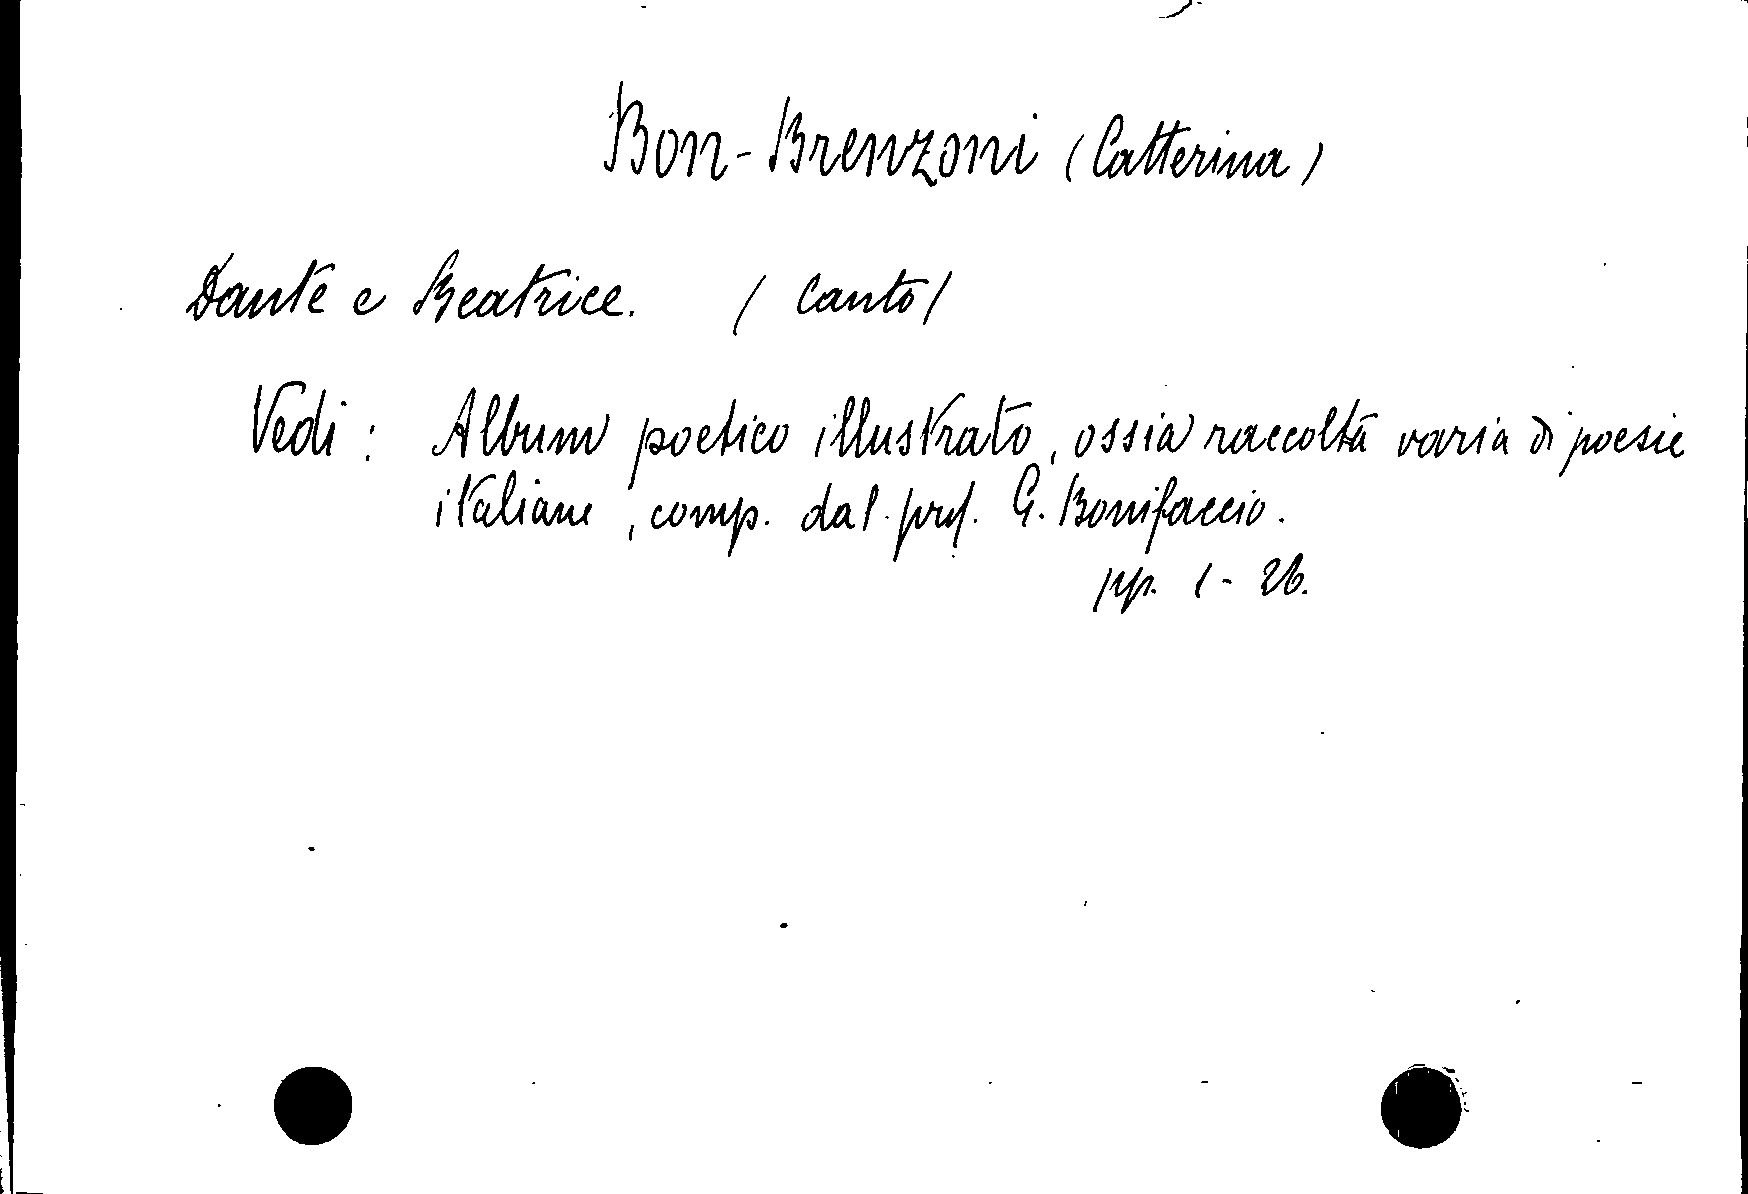 Bon-Brenzoni (Catterina)
Dante e Beatrice. (Canto)
Vedi: Album poetico illustrato, ossia raccolta varia di poesie
italiane, comp. dal prof. G. Bonifaccio.
pp. 1-26.